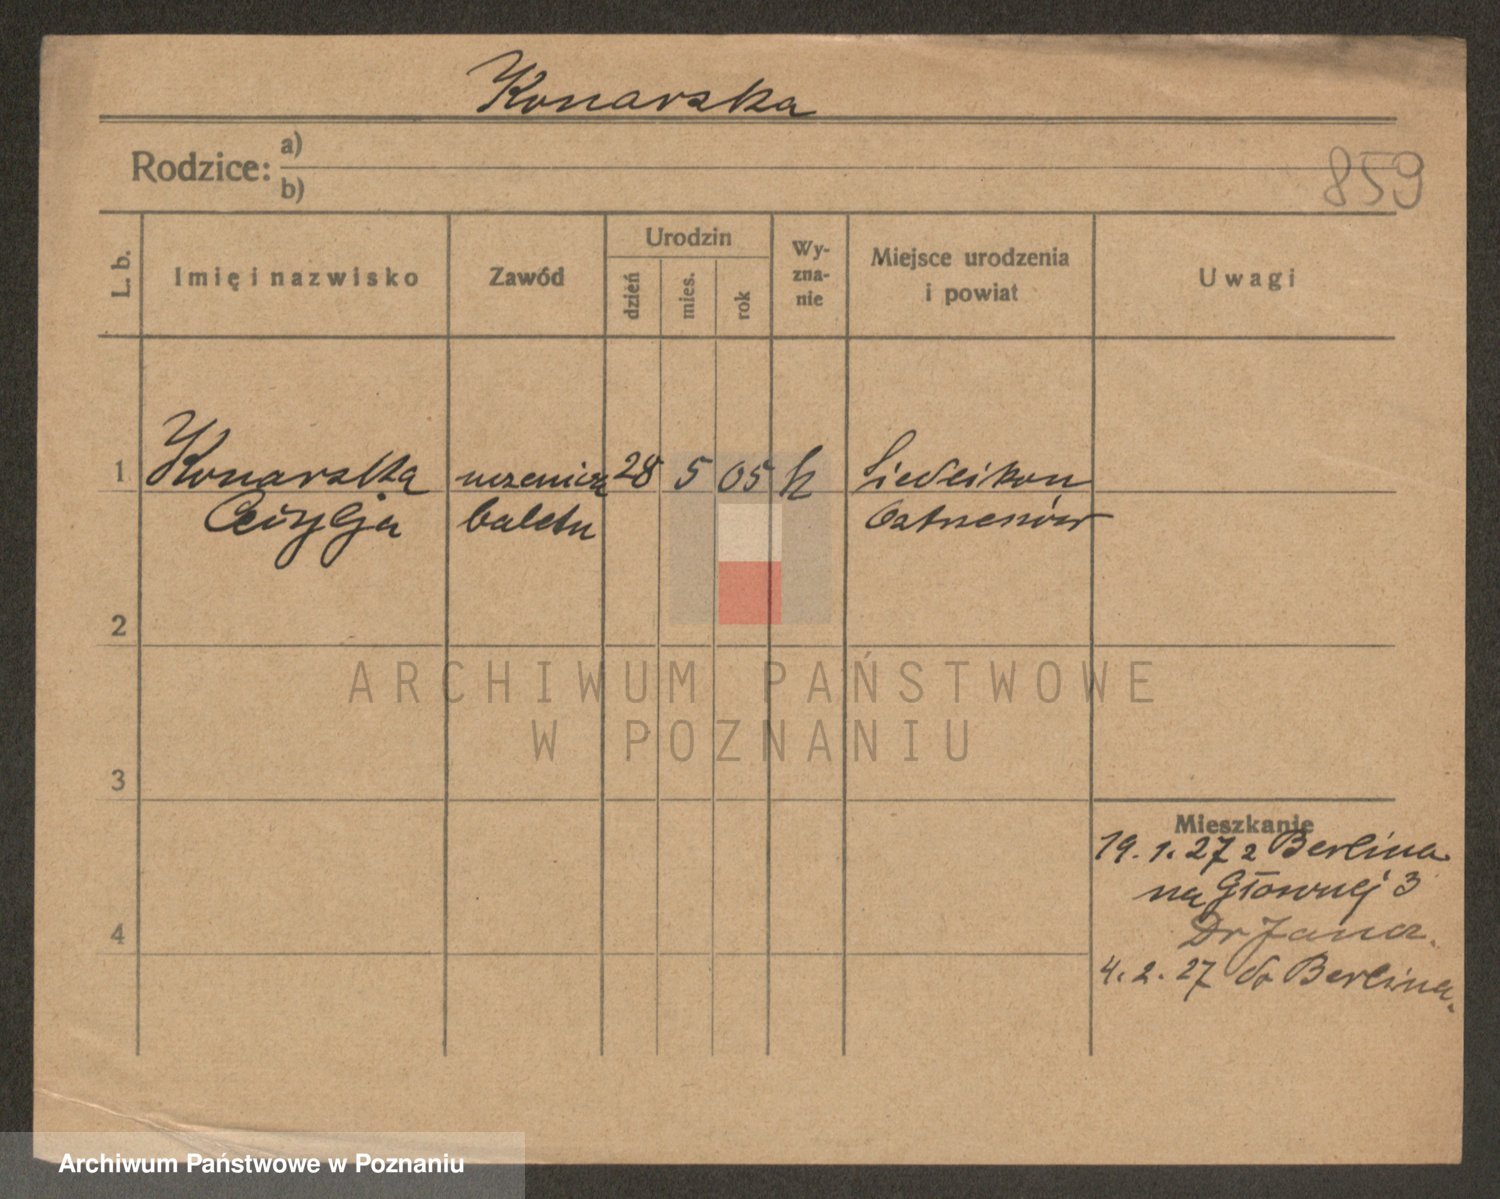 Konarska
Rodzice: a)
b)
859
L. b.
Imię i nazwisko
Zawód
Urodzin
dzień
mies.
rok
Wy-
zna-
nie
Miejsce urodzenia
i powiat
Uwagi
1 Konarska uczenica 28 5 05 k Siedlikow
Cecylja baletu Ostrzeszów
2
3
4
Mieszkanie
19. 1. 27 z Berlina
na Głownej 3
Dr Jana.
4. 2. 27 do Berlina.
ARCHIWUM PAŃSTWOWE
W POZNANIU
Archiwum Państwowe w Poznaniu